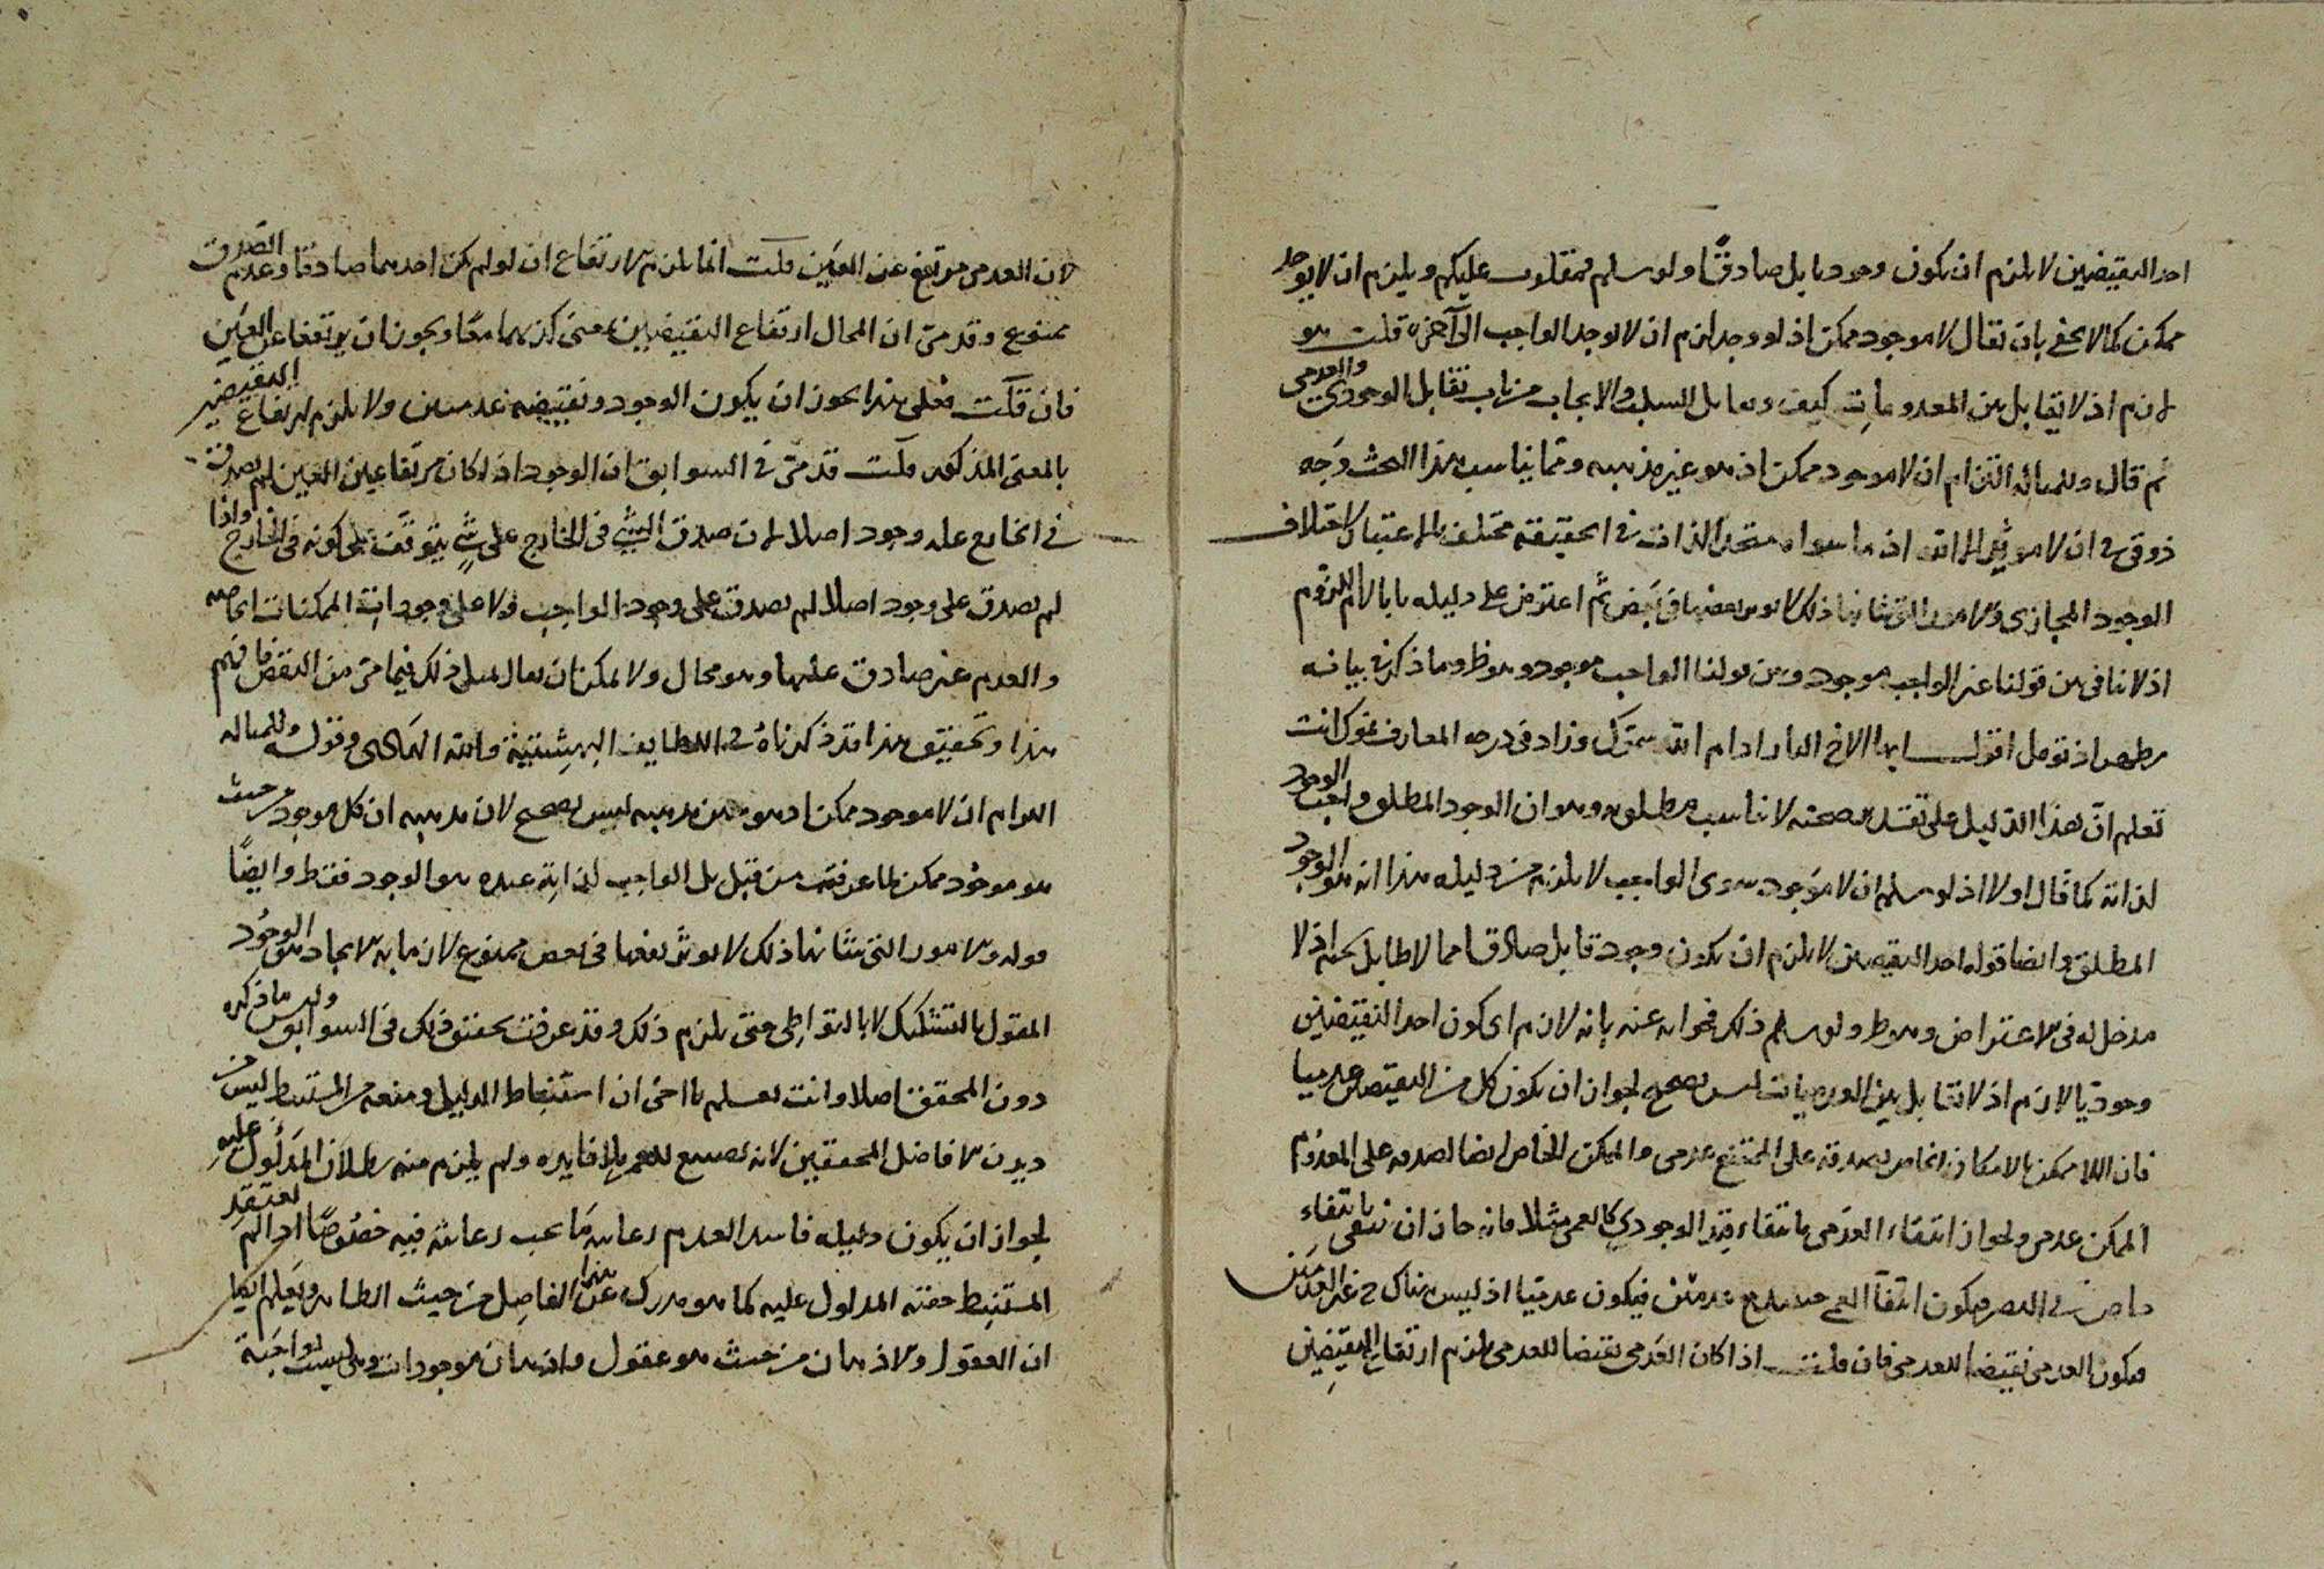 احد النقيضين لا يلزم ان يكون وجوديا بل صادقا ولو سلم فمقلوب عليكم ويلزم ان لا يوجد
ممكن كما لا يخفى بان يقال لا موجود ممكن اذ لو وجد لزم ان لا يوجد الواجب الى آخره قلت هو
لازم اذ لا تقابل بين المعدومات كيف وتقابل السلب والايجاب من باب تقابل الوجودي والعدمي
ثم قال وللسائل التزام ان لا موجود ممكن اذ هو عين مذهبه ومما يناسب هذا البحث وجه
ذوقي في ان لا مؤثر الا الله اذ ما سواه متحد الذات في الحقيقة مختلف بالاعتبار لاختلاف
الوجود المجازي والامور التي شانها ذلك لا يؤثر بعضها في بعض ثم اعترض على دليله باللزوم
اذ لا تنافي بين قولنا غير الواجب موجود وبين قولنا الواجب موجود وهو ظ وما ذكر في بيانه
اذ تؤمل اقول ايها الاخ ادام الله وزاد في درجه المعارف انت
تعلم ان هذا الدليل على تقدير صحته لا يناسب مطلوبه وهو ان الوجود المطلق واجب الوجود
لذاته كما قال اولا اذ لو سلم ان لا موجود سوى الواجب لا يلزم من دليله هذا انه هو الوجود
المطلق وايضا قوله احد النقيضين لا يلزم ان يكون وجود قابل صادقا مما لا طايل تحته اذ لا
مدخل له في الاعتراض وهو ظ ولو سلم ذلك فجوابه عنه بانه لازم اي كون احد النقيضين
وجوديا لازم اذ لا تقابل بين العدميات ليس بصحيح لجواز ان يكون كل من النقيضين عدميا
فان اللا ممكن بالامكان الخاص لصدقه على الممتنع عدمي والممكن الخاص ايضا لصدقه على المعدوم
الممكن عدمي ولجواز انتفاء العدمي بانتفاء قيد الوجودي كالعمى مثلا فانه جاز ان ينتفي بانتفاء
في البصر فيكون انتفاء العمى عدميا فيكون عدميا اذ ليس هناك غير العدمين
فيكون العدمي نقيضا للعدمي فان قلت اذا كان العدمي نقيضا للعدمي يلزم ارتفاع النقيضين
لان العدمي مرتفع عن العين قلت انما يلزم الارتفاع ان لو لم يكن احدهما صادقا وعدم الصدق
ممنوع وقد مر ان المحال ارتفاع النقيضين بمعنى كذبهما معا ويجوز ان يرتفعا عن العين
فان قلت فعلى هذا يجوز ان يكون الوجود ونقيضه عدميين ولا يلزم ارتفاع النقيضين
بالمعنى المذكور قلت قد مر في السوابق ان الوجود اذا كان ارتفاعه عن العين لم يصدق
في الخارج عليه وجود اصلا لان صدق الشيء في الخارج على شيء يتوقف على كونه في الخارج واذا
لم يصدق على وجود اصلا لم يصدق على وجود الواجب ولا على وجودات الممكنات الخاصه
والعدم غير صادق عليها وهو محال ولا يمكن ان يقال مثل ذلك فيما مر من النقض فافهم
هذا وتحقيق هذا قد ذكرناه في اللطايف البهشتية والله الهادي وقوله وللسائل
التزام ان لا موجود ممكن اذ هو عين مذهبه ليس بصحيح لان مذهبه ان كل موجود من حيث
هو موجود ممكن لما عرفت من قبل بل الواجب لذاته عنده هو الوجود فقط وايضا
قوله والامور التي شانها ذلك لا يؤثر بعضها في بعض ممنوع لان ما به الايجاد هو الوجود
المقول بالتشكيك لا بالتواطي حتى يلزم ذلك وقد عرفت تحقيق ذلك في السوابق وليس ما ذكره
دون المحققين اصلا وانت تعلم يا اخي ان استنباط الدليل ومنعه من المستنبط ليس من
ديدن الافاضل المحققين لانه تضييع للعمر بلا فايدة ولم يلزم منه بطلان المدلول عليه
لجواز ان يكون دليله فاسدا لعدم رعاية ما يجب رعايته فيه خصوصا اذا لم يعتقد
المستنبط حقية المدلول عليه كما هو مدرك هذا الفاضل من حيث الظاهر ويعلم ايضا
ان العقول والاذهان من حيث هو عقول واذهان موجودات وهي ليست بواجبة